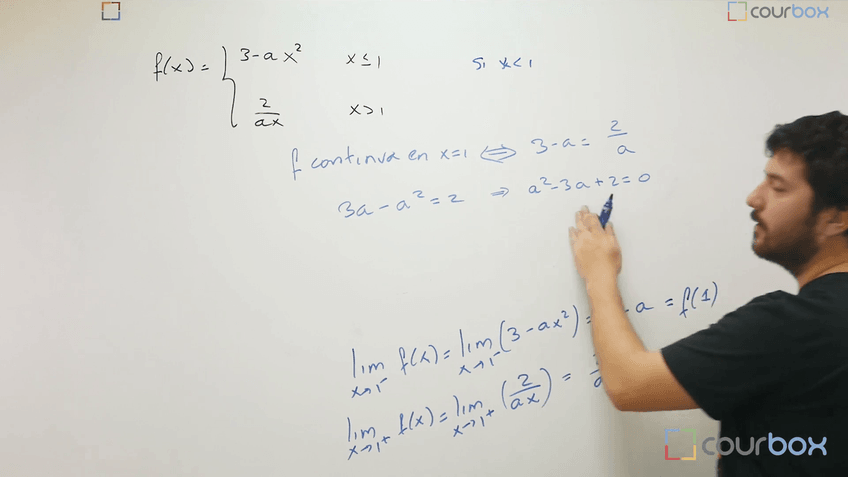 courbox
f(x) = { 3-ax² x≤1 si x<1
2/ax x>1
f continua en x=1 ⇔ 3-a = 2/a
3a-a²=2 ⇒ a²-3a+2=0
lim x→1⁻ f(x) = lim x→1⁻ (3-ax²) = -a = f(1)
lim x→1⁺ f(x) = lim x→1⁺ (2/ax) =
courbox